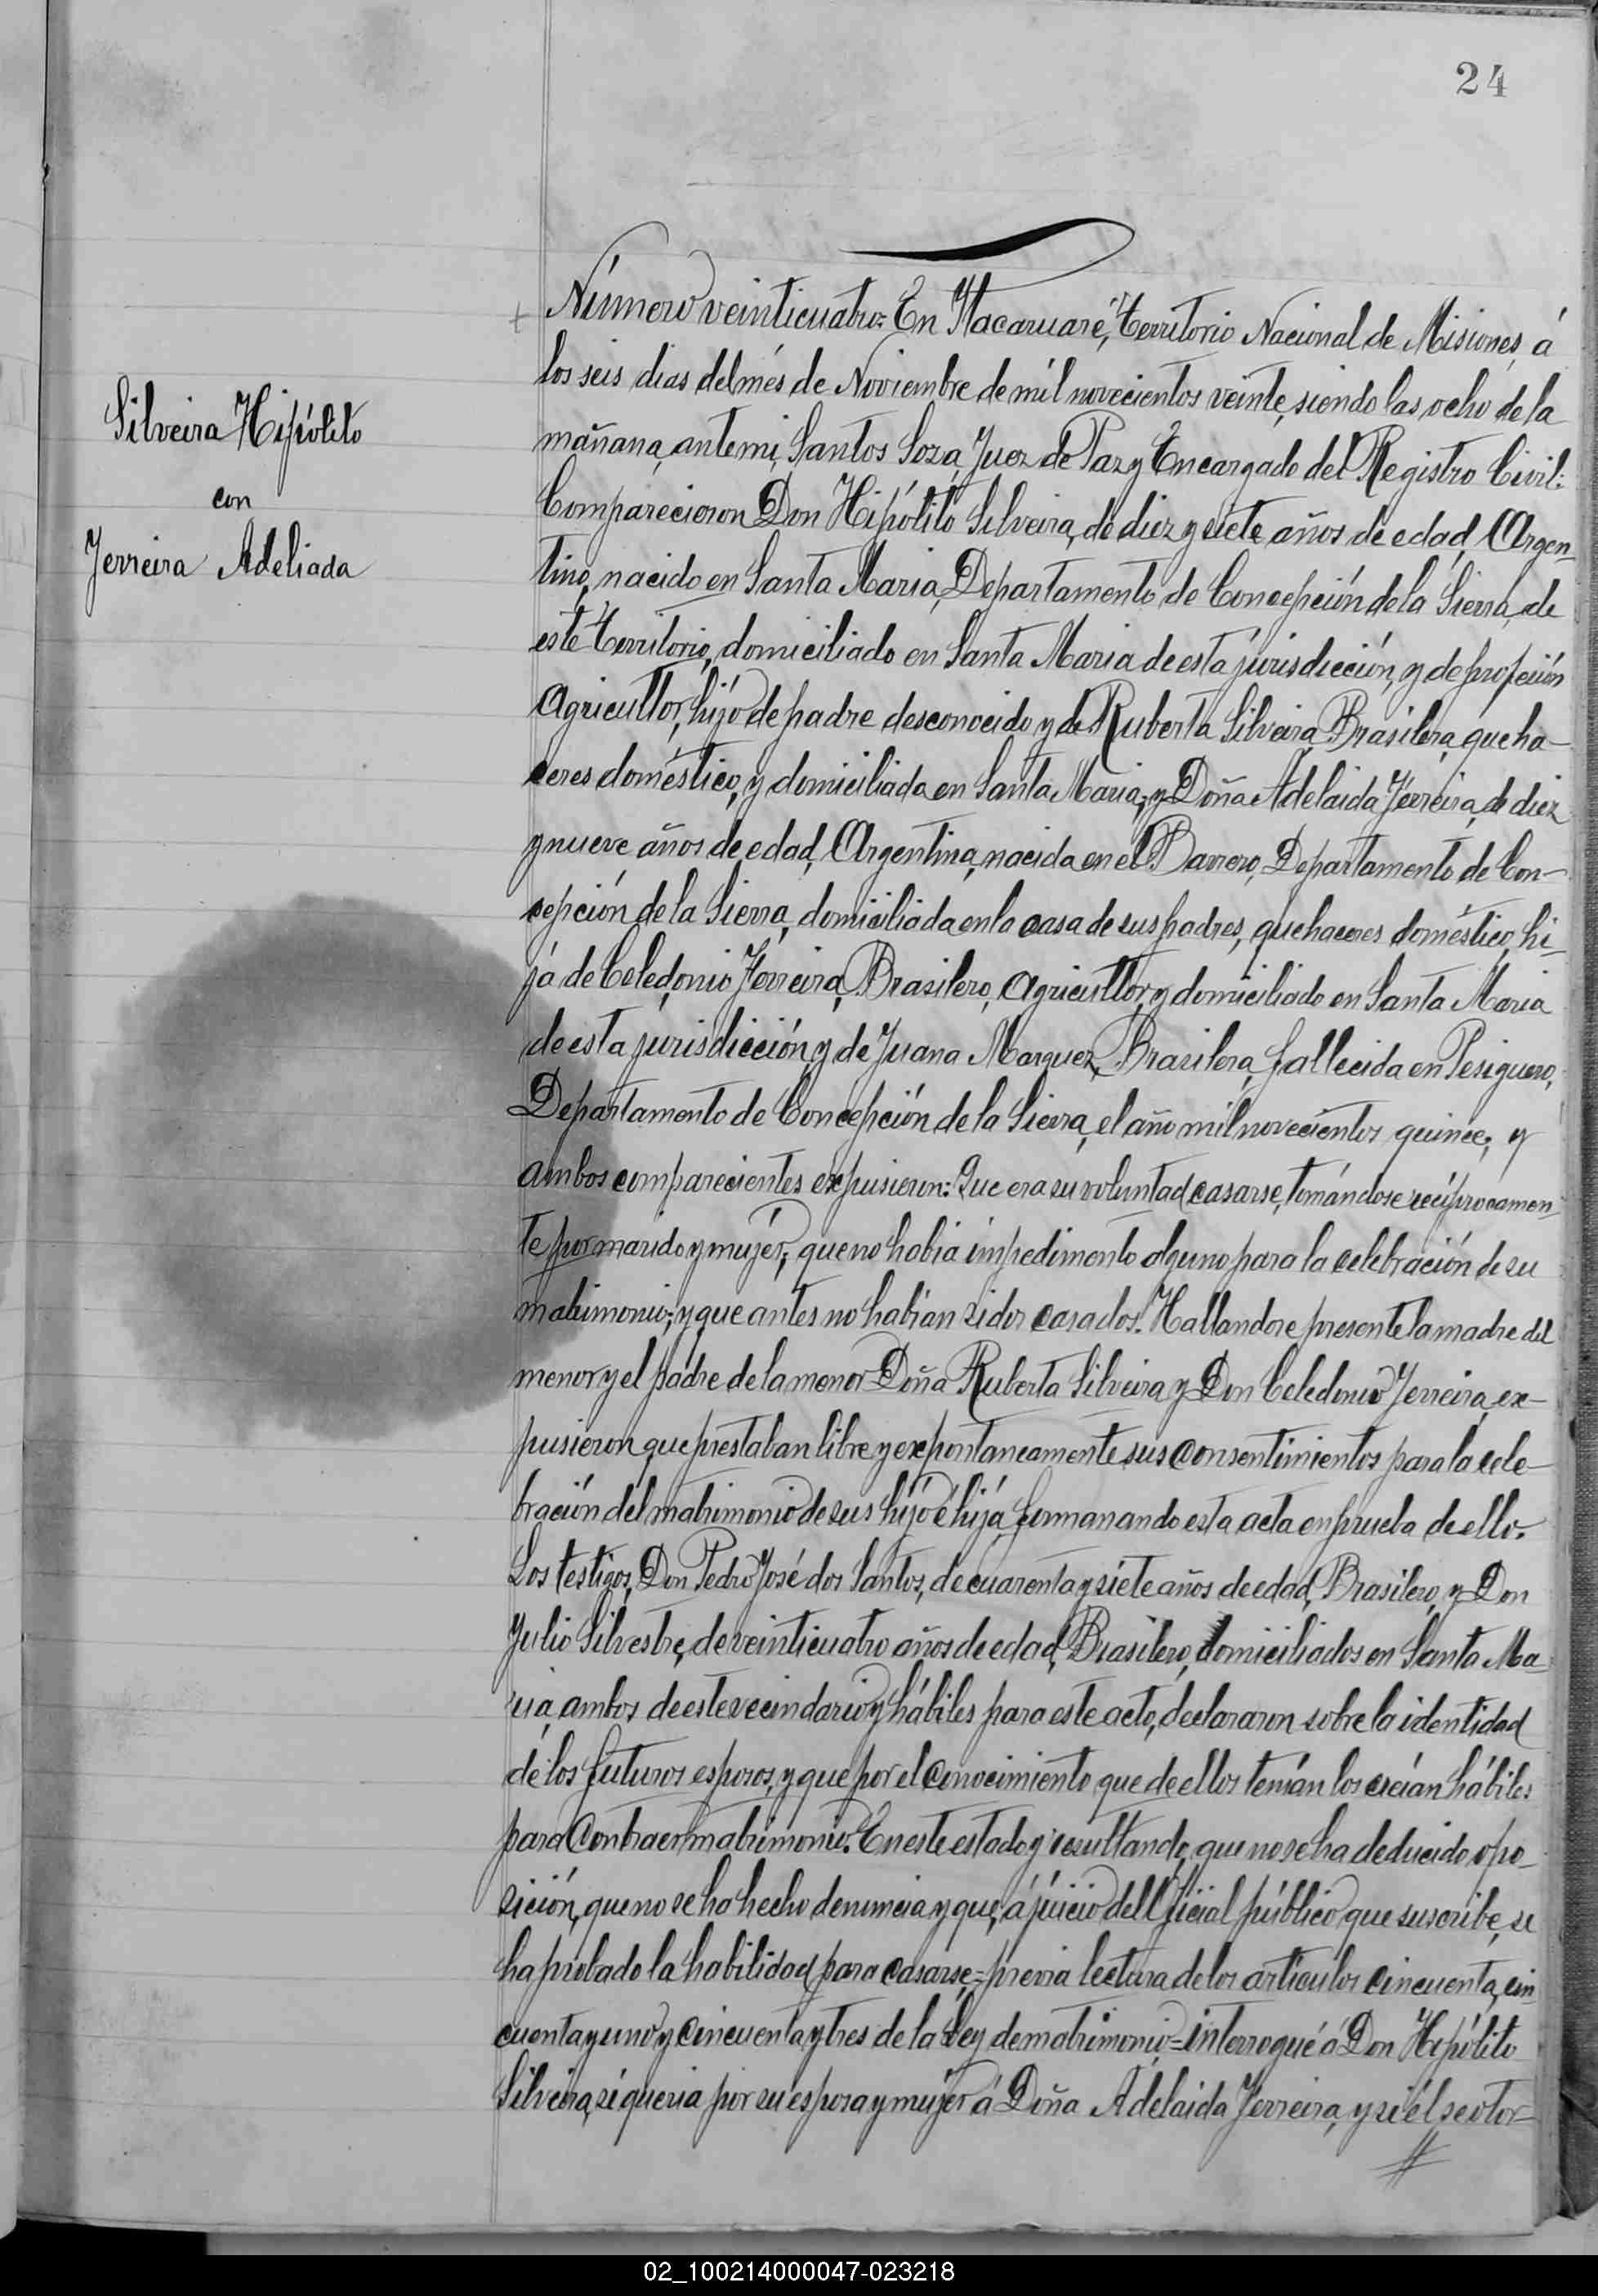 24
Número veinticuatro: En Itacaruaré, Territorio Nacional de Misiones, á
los seis dias del més de Noviembre de mil novecientos veinte, siendo las ocho de la
mañana, ante mi, Santos Soza, Juez de Paz y Encargado del Registro Civil:
Silveira Hipólito
con
Ferreira Adeliada
Comparecieron Don Hipólito Silveira, de diez y siete años de edad, Argen-
tino, nacido en Santa Maria, Departamento de Concepción de la Sierra, de
este Territorio, domiciliado en Santa Maria de esta jurisdicción, y de profeción
Agricultor, hijo de padre desconocido y de Ruberta Silveira, Brasilera, queha-
ceres doméstico, y domiciliada en Santa Maria; y Doña Adelaida Ferreira, de diez
y nueve años de edad, Argentina, nacida en el Barrero, Departamento de Con-
cepción de la Sierra, domiciliada en la casa de sus padres, quehaceres doméstico, hi-
ja de Celedonio Ferreira, Brasilero, Agricultor, y domiciliado en Santa Maria
de esta jurisdicción, y de Juana Marquez, Brasilera, fallecida en Pesiguero,
Departamento de Concepción de la Sierra, el año mil novecientos quince; y
ambos comparecientes expusieron: Que era su voluntad casarse, tomándose recíprocamen-
te por marido y mujer; que no habia impedimento alguno para la celebración de su
matrimonio; y que antes no habían sidos casados. Hallandose presente la madre del
menor y el padre de la menor Doña Ruberta Silveira y Don Celedonio Ferreira, ex-
pusieron que prestaban libre y expontaneamente sus consentimientos para la cele-
bración del matrimonio de sus hijo é hija, firmanando esta acta en prueba de ello.
Los testigos, Don Pedro José dos Santos, de cuarenta y siete años de edad, Brasilero, y Don
Julio Silvestre, de veinticuatro años de edad, Brasilero, domiciliados en Santa Ma-
ria, ambos de este vecindario y hábiles para este acto, declararon sobre la identidad
de los futuros esposos, y que por el conocimiento que de ellos tenían los creían hábiles
para contraer matrimonio. En este estado y resultando, que no se ha deducido opo-
sición, que no se ha hecho denuncia y que, á juicio del Oficial público que suscribe, se
ha probado la habilidad para casarse,=previa lectura de los articulos cincuenta, cin
cuenta y uno y cincuenta y tres de la Ley de matrimonio=interrogué á Don Hipólito
Silveira, si queria por su esposa y mujer á Doña Adelaida Ferreira, y si él se otor-
02_100214000047-023218